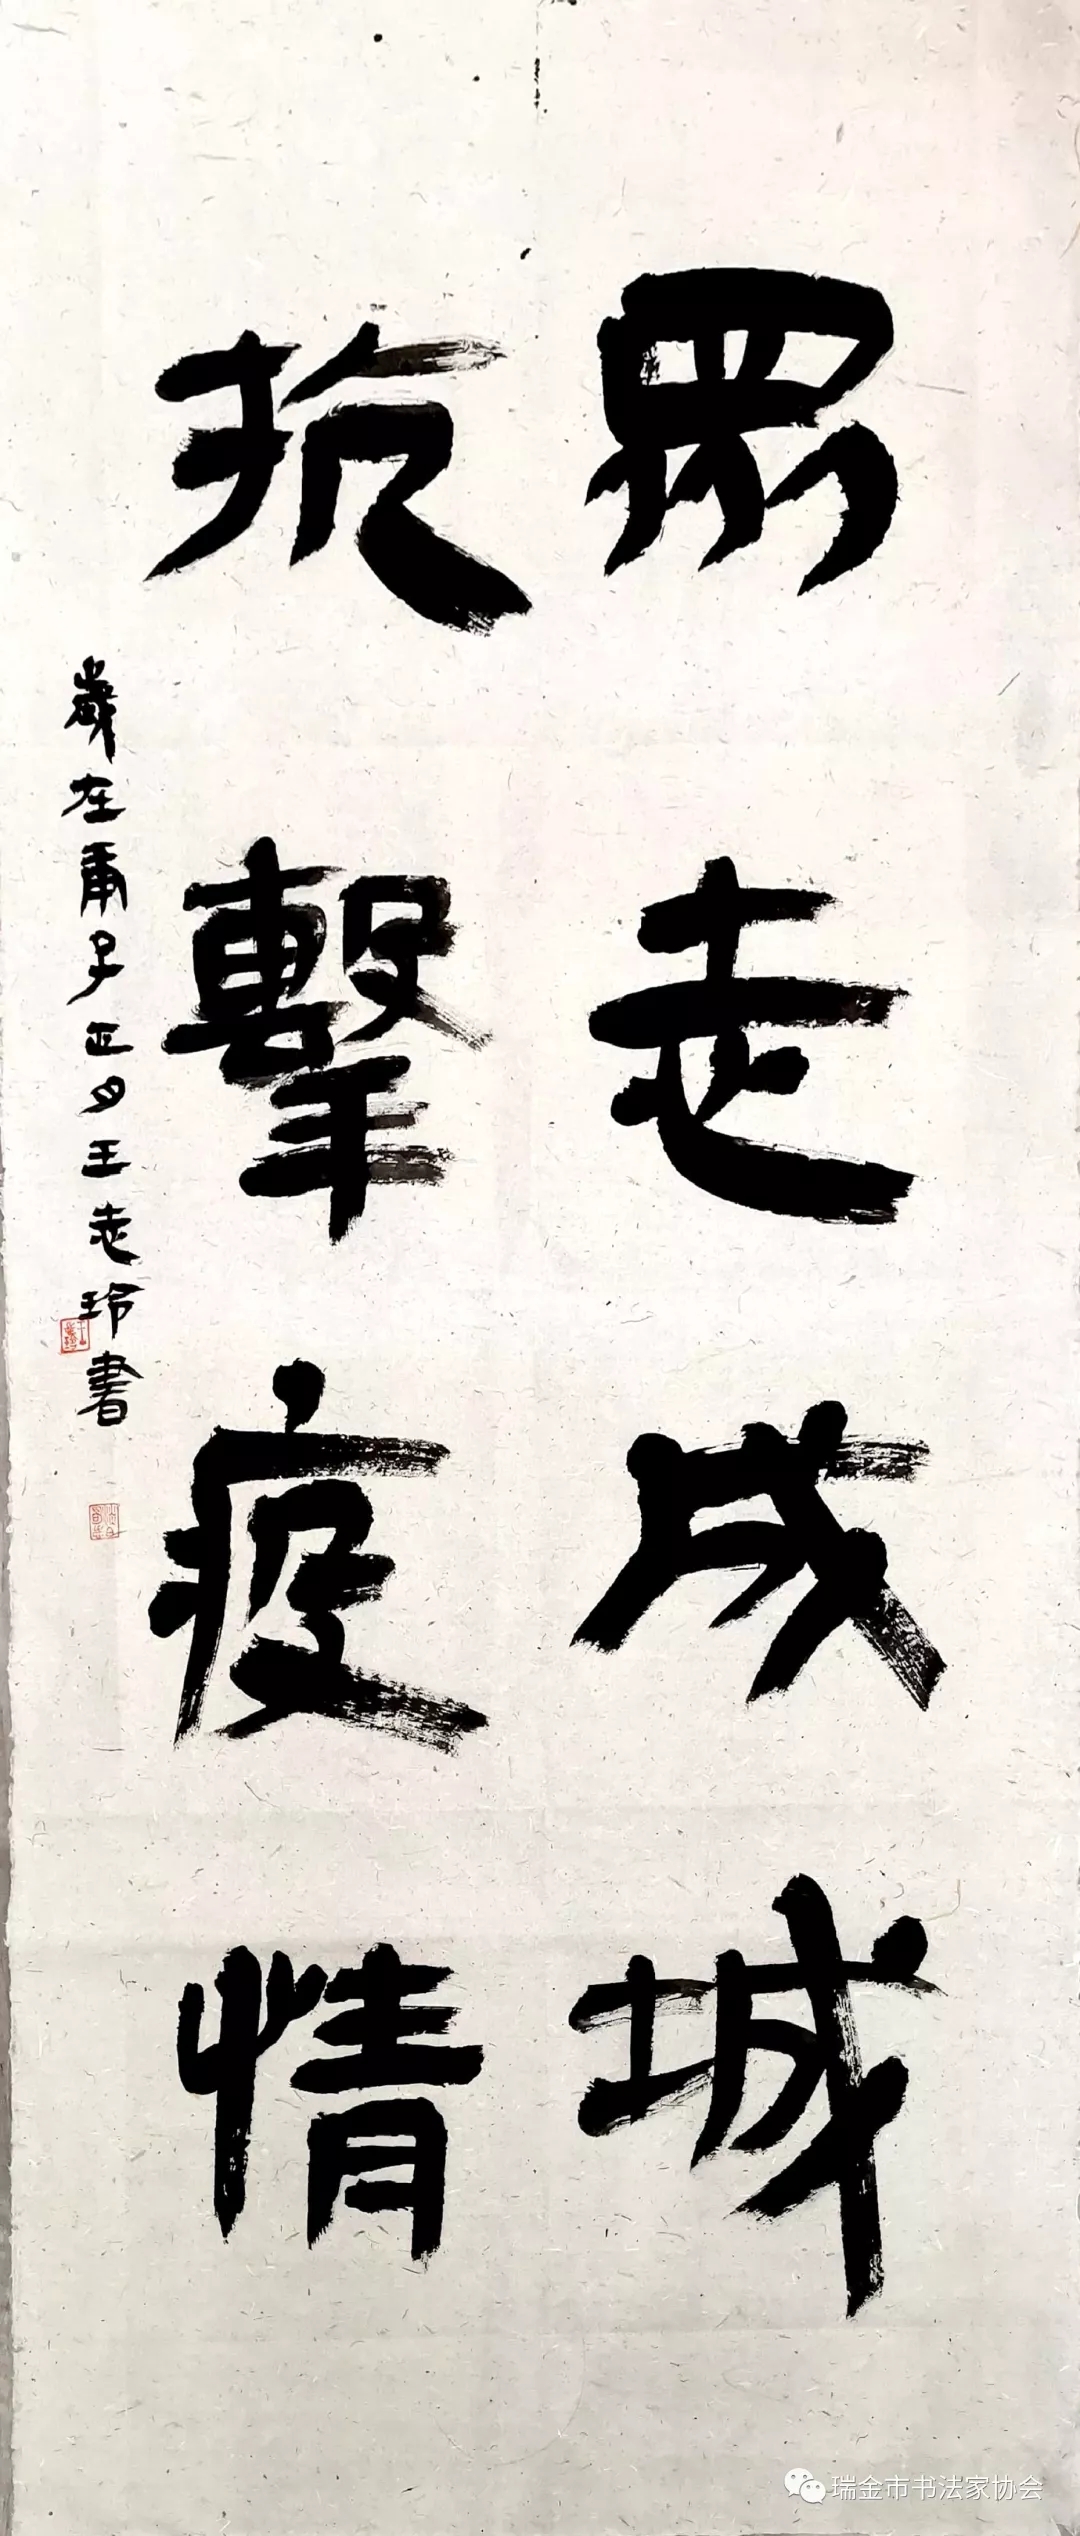 眾志成城
抗擊疫情
歲在庚子正月王志珍書
瑞金市书法家协会